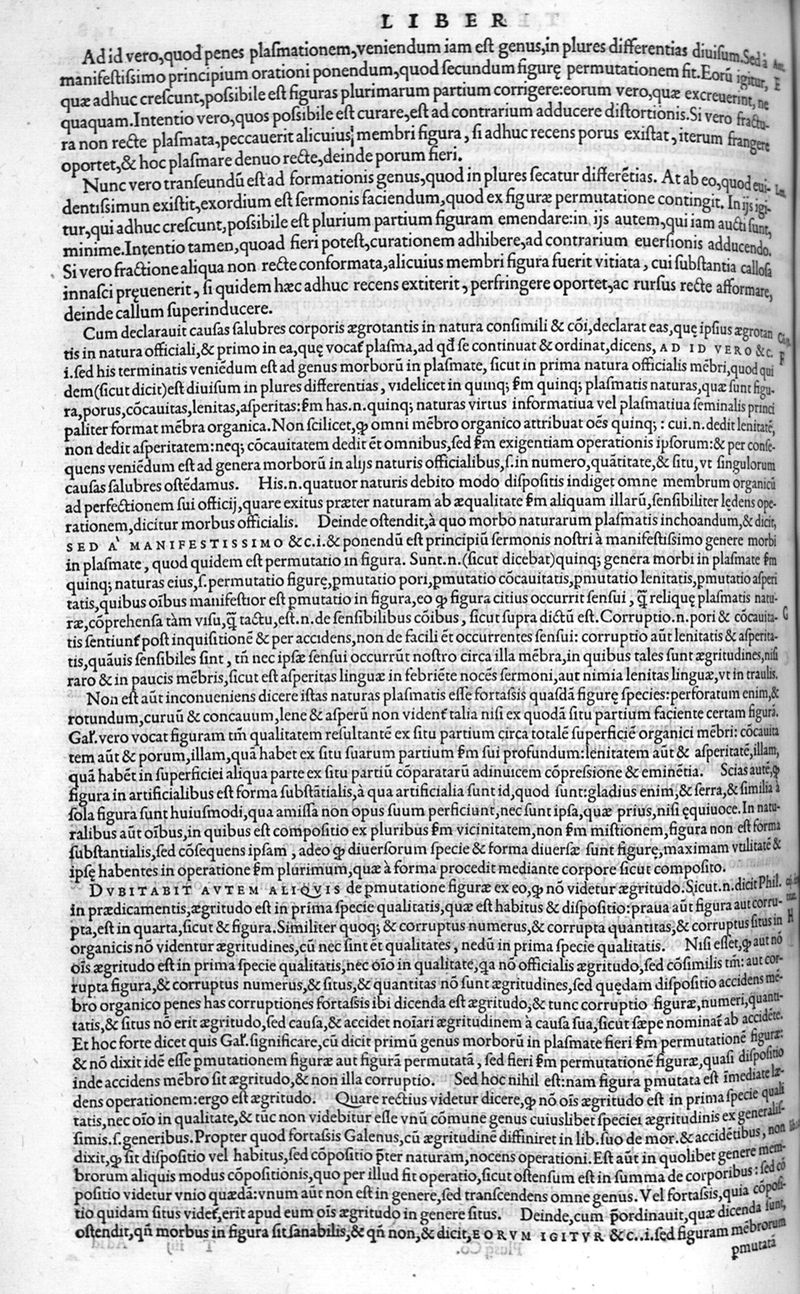 LIBER
Ad id vero, quod penes plaſmationem, veniendum iam eſt genus, in plures differentias diuiſum. Sed à
manifeſtiſsimo principium orationi ponendum, quod ſecundum figurę permutationem fit. Eorū igitur,
quæ adhuc creſcunt, poſsibile eſt figuras plurimarum partium corrigere: eorum vero, quæ excreuerint, ne
quaquam. Intentio vero, quos poſsibile eſt curare, eſt ad contrarium adducere diſtortionis. Si vero fractu-
ra non recte plaſmata, peccauerit alicuius membri figura, ſi adhuc recens porus exiſtat, iterum frangere
oportet, & hoc plaſmare denuo recte, deinde porum fieri.
Nunc vero tranſeundū eſt ad formationis genus, quod in plures ſecatur differētias. At ab eo, quod eui-
dentiſsimun exiſtit, exordium eſt ſermonis faciendum, quod ex figuræ permutatione contingit. In ijs igi-
tur, qui adhuc creſcunt, poſsibile eſt plurium partium figuram emendare: in ijs autem, qui iam aucti ſunt,
minime. Intentio tamen, quoad fieri poteſt, curationem adhibere, ad contrarium euerſionis adducendo.
Si vero fractione aliqua non recte conformata, alicuius membri figura fuerit vitiata, cui ſubſtantia calloſa
innaſci pręuenerit, ſi quidem hæc adhuc recens extiterit, perfringere oportet, ac rurſus recte afformare,
deinde callum ſuperinducere.
Cum declarauit cauſas ſalubres corporis ægrotantis in natura conſimili & cōi, declarat eas, quę ipſius ægrotan
tis in natura officiali, & primo in ea, quę vocat̃ plaſma, ad qđ ſe continuat & ordinat, dicens, AD ID VERO &c.
i. ſed his terminatis veniēdum eſt ad genus morborū in plaſmate, ſicut in prima natura officialis mēbri, quod qui
dem (ſicut dicit) eſt diuiſum in plures differentias, videlicet in quinq; ẜm quinq; plaſmatis naturas, quæ ſunt figu-
ra, porus, cōcauitas, lenitas, aſperitas: ẜm has. n. quinq; naturas virtus informatiua vel plaſmatiua ſeminalis princi
paliter format mēbra organica. Non ſcilicet, ꝙ omni mēbro organico attribuat oēs quinq;: cui. n. dedit lenitatē,
non dedit aſperitatem: neq; cōcauitatem dedit ēt omnibus, ſed ẜm exigentiam operationis ipſorum: & per conſe-
quens veniēdum eſt ad genera morborū in alijs naturis officialibus, ſ. in numero, quātitate, & ſitu, vt ſingulorum
cauſas ſalubres oſtēdamus. His. n. quatuor naturis debito modo diſpoſitis indiget omne membrum organicū
ad perfectionem ſui officij, quare exitus præter naturam ab æqualitate ẜm aliquam illarū, ſenſibiliter lędens ope-
rationem, dicitur morbus officialis. Deinde oſtendit, à quo morbo naturarum plaſmatis inchoandum, & dicit,
SED A' MANIFESTISSIMO &c. i. & ponendū eſt principiū ſermonis noſtri à manifeſtiſsimo genere morbi
in plaſmate, quod quidem eſt permutatio in figura. Sunt. n. (ſicut dicebat) quinq; genera morbi in plaſmate ẜm
quinq; naturas eius, ſ. permutatio figurę, pmutatio pori, pmutatio cōcauitatis, pmutatio lenitatis, pmutatio aſperi
tatis, quibus oībus manifeſtior eſt pmutatio in figura, eo ꝙ figura citius occurrit ſenſui, q̃ reliquę plaſmatis natu-
ræ, cōprehenſa tàm viſu, q̃ tactu, eſt. n. de ſenſibilibus cōibus, ſicut ſupra dictū eſt. Corruptio. n. pori & cōcauita-
tis ſentiunt̃ poſt inquiſitionē & per accidens, non de facili ēt occurrentes ſenſui: corruptio aūt lenitatis & aſperita-
tis, quāuis ſenſibiles ſint, tñ nec ipſæ ſenſui occurrūt noſtro circa illa mēbra, in quibus tales ſunt ægritudines, niſi
raro & in paucis mēbris, ſicut eſt aſperitas linguæ in febriēte nocēs ſermoni, aut nimia lenitas linguæ, vt in traulis.
Non eſt aūt inconueniens dicere iſtas naturas plaſmatis eſſe fortaſsis quaſdā figurę ſpecies: perforatum enim, &
rotundum, curuū & concauum, lene & aſperū non vident̃ talia niſi ex quodā ſitu partium faciente certam figurā.
Gal̃. vero vocat figuram tm̃ qualitatem reſultantē ex ſitu partium circa totalē ſuperficiē organici mēbri: cōcauita
tem aūt & porum, illam, quā habet ex ſitu ſuarum partium ẜm ſui profundum: lenitatem aūt & aſperitatē, illam,
quā habēt in ſuperficiei aliqua parte ex ſitu partiū cōparatarū adinuicem cōpreſsione & eminētia. Scias autē, ꝙ
figura in artificialibus eſt forma ſubſtātialis, à qua artificialia ſunt id, quod ſunt: gladius enim, & ſerra, & ſimilia à
ſola figura ſunt huiuſmodi, qua amiſſa non opus ſuum perficiunt, nec ſunt ipſa, quæ prius, niſi ęquiuoce. In natu-
ralibus aūt oībus, in quibus eſt compoſitio ex pluribus ẜm vicinitatem, non ẜm miſtionem, figura non eſt forma
ſubſtantialis, ſed cōſequens ipſam, adeo ꝙ diuerſorum ſpecie & forma diuerſæ ſunt figurę, maximam vtilitatē &
ipſę habentes in operatione ẜm plurimum, quæ à forma procedit mediante corpore ſicut compoſito.
DVBITABIT AVTEM ALIQVIS de pmutatione figuræ ex eo, ꝙ nō videtur ægritudo. Sicut. n. dicit Phil.
in prædicamentis, ægritudo eſt in prima ſpecie qualitatis, quæ eſt habitus & diſpoſitio: praua aūt figura aut corru-
pta, eſt in quarta, ſicut & figura. Similiter quoq; & corruptus numerus, & corrupta quantitas, & corruptus ſitus in
organicis nō videntur ægritudines, cū nec ſint ēt qualitates, nedū in prima ſpecie qualitatis. Niſi eſſet, ꝙ aut nō
oīs ægritudo eſt in prima ſpecie qualitatis, nec oīo in qualitate, qa nō officialis ægritudo, ſed cōſimilis tm̃: aut cor-
rupta figura, & corruptus numerus, & ſitus, & quantitas nō ſunt ægritudines, ſed quędam diſpoſitio accidens mē-
bro organico penes has corruptiones fortaſsis ibi dicenda eſt ægritudo, & tunc corruptio figuræ, numeri, quanti-
tatis, & ſitus nō erit ægritudo, ſed cauſa, & accidet noīari ægritudinem à cauſa ſua, ſicut ſæpe nominat̃ ab accidēte.
Et hoc forte dicet quis Gal̃. ſignificare, cū dicit primū genus morborū in plaſmate fieri ẜm permutationē figuræ:
& nō dixit idē eſſe pmutationem figuræ aut figurā permutatā, ſed fieri ẜm permutationē figuræ, quaſi diſpoſitio
inde accidens mēbro ſit ægritudo, & non illa corruptio. Sed hoc nihil eſt: nam figura pmutata eſt īmediate læ-
dens operationem: ergo eſt ægritudo. Quare rectius videtur dicere, ꝙ nō oīs ægritudo eſt in prima ſpecie quali
tatis, nec oīo in qualitate, & tūc non videbitur eſſe vnū cōmune genus cuiuslibet ſpeciei ægritudinis ex generaliſ-
ſimis. ſ. generibus. Propter quod fortaſsis Galenus, cū ægritudinē diffiniret in lib. ſuo de mor. & accidētibus, non
dixit, ꝙ ſit diſpoſitio vel habitus, ſed cōpoſitio p̄ter naturam, nocens operationi. Eſt aūt in quolibet genere mem-
brorum aliquis modus cōpoſitionis, quo per illud fit operatio, ſicut oſtenſum eſt in ſumma de corporibus: ſed cō
poſitio videtur vnio quædā: vnum aūt non eſt in genere, ſed tranſcendens omne genus. Vel fortaſsis, quia cōpoſi-
tio quidam ſitus videt̃, erit apud eum oīs ægritudo in genere ſitus. Deinde, cum p̄ordinauit, quæ dicenda ſunt,
oſtendit, qñ morbus in figura ſit ſanabilis, & qñ non, & dicit, EORVM IGITVR &c.. i. ſed figuram mēbrorum
pmutatā